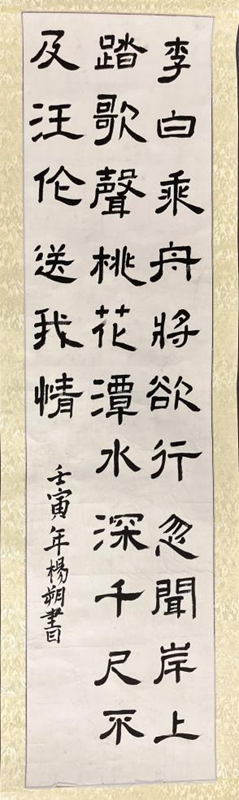 李白乘舟將欲行忽聞岸上
踏歌聲桃花潭水深千尺不
及汪伦送我情
壬寅年楊朔書